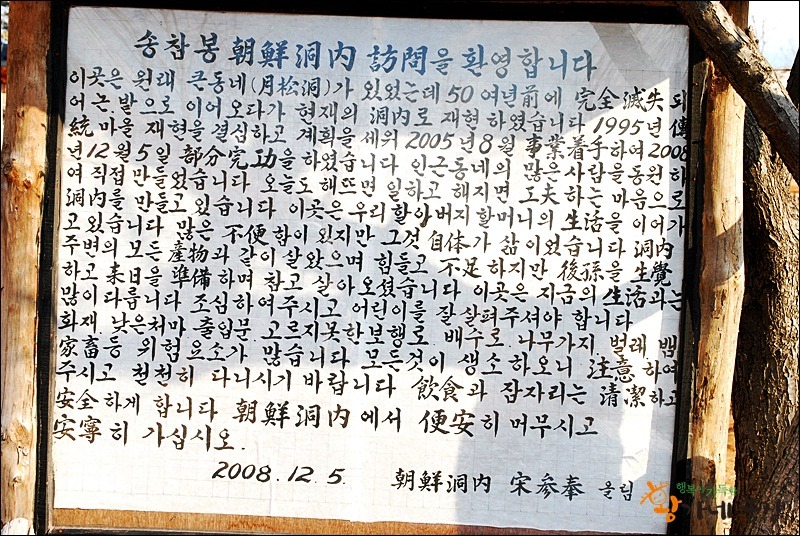 송참봉 朝鮮洞內 訪問을 환영합니다
이곳은 원래 큰동네(月松洞)가 있었는데 50 여년前에 完全滅失 되
어 논 밭으로 이어 오다가 현재의 洞內로 재현 하였습니다 1995년 傳
統 마을 재현을 결심하고 계획을 세워 2005년 8월 事業着手 하여 2008
년 12월 5일 部分完功을 하였습니다 인근동네의 많은 사람을 동원 하
여 직접 만들었습니다 오늘도 해뜨면 일하고 해지면 工夫 하는 마음으로
洞內를 만들고 있습니다 이곳은 우리 할아버지 할머니의 生活을 이어가
고 있습니다 많은 不便함이 있지만 그것 自体가 삶 이었습니다 洞內
주변의 모든 産物과 같이 살았으며 힘들고 不足하지만 後孫을 生覺
하고 来日을 準備하며 참고 살아 오셨습니다 이곳은 지금의 生活과는
많이 다릅니다 조심 하여주시고 어린이를 잘 살펴주셔야 합니다
화재 낮은처마 출입문. 고르지못한 보행로. 배수로. 나무가지. 벌레. 뱀
家畜 등 위험 요소가 많습니다 모든것이 생소 하오니 注意 하여
주시고 천천히 다니시기 바랍니다 飮食과 잠자리는 淸潔하고
安全 하게 합니다 朝鮮洞內 에서 便安히 머무시고
安寧 히 가십시오.
2008. 12. 5. 朝鮮洞內 宋參奉 올림